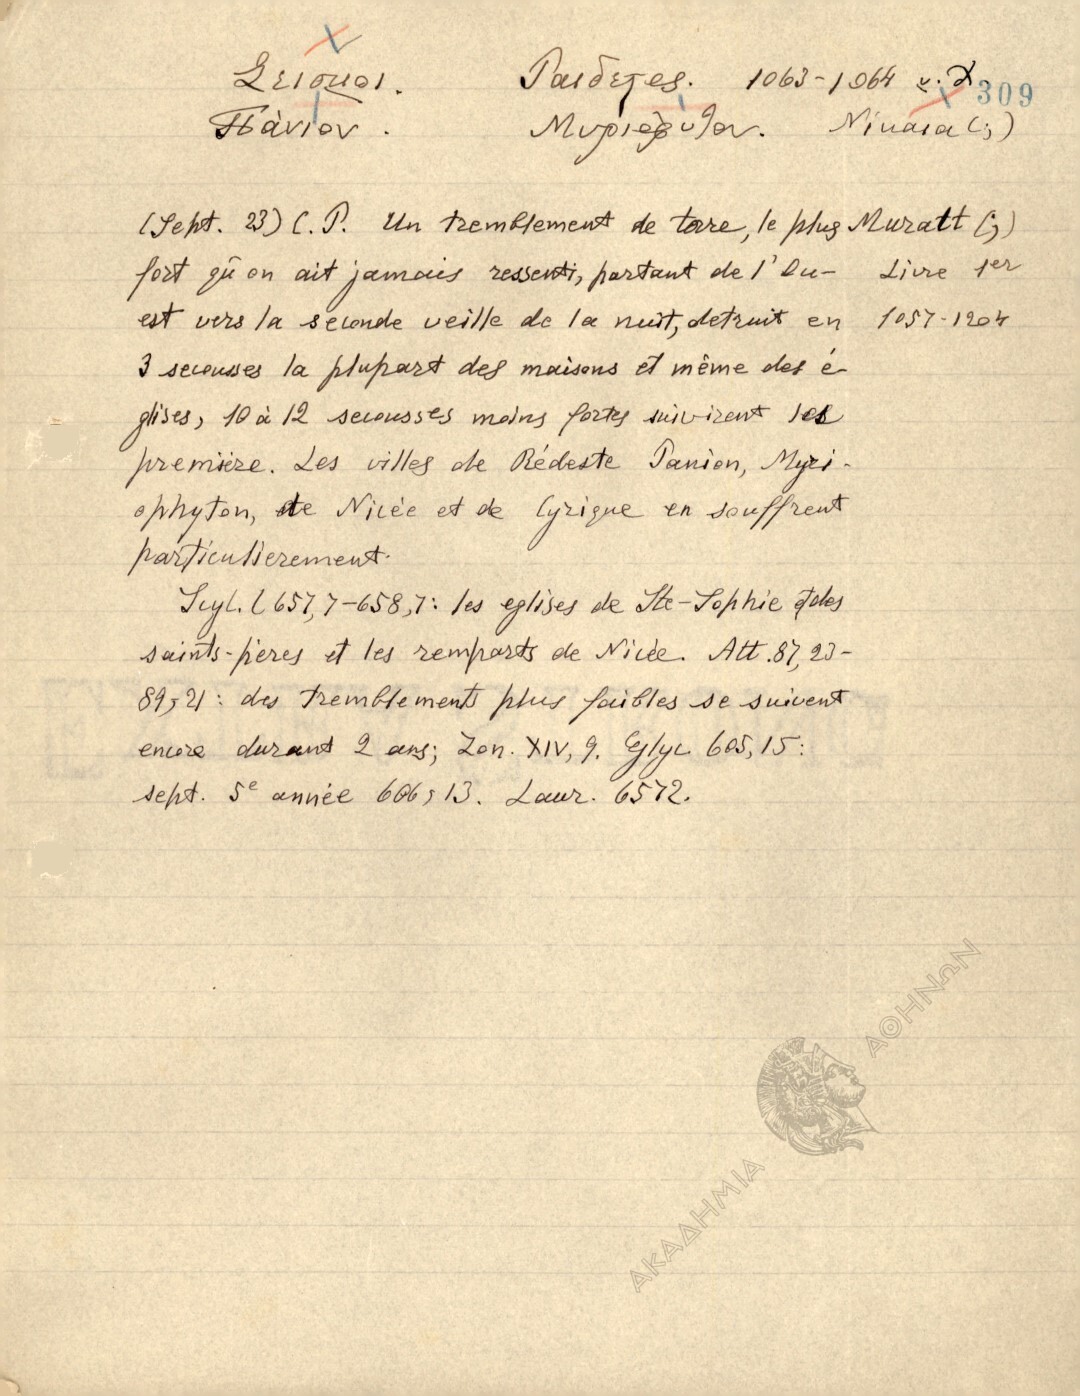 Σεισμοι. Ραιδεστος. 1063-1064 μ.Χ 309
Πάνιον. Μυριόφυτον. Νίκαια (;)
(Sept. 23) C.P. Un tremblement de terre, le plus Muralt (;)
fort qu'on ait jamais ressenti, partant de l'Ou- Livre 1er
est vers la seconde veille de la nuit, detruit en 1057-1204
3 secousses la plupart des maisons et même des é-
glises, 10 à 12 secousses moins fortes suivirent les
première. Les villes de Rédeste Panion, Myri-
ophyton, de Nicée et de Cyzique en souffrent
particulierement.
Scyl. (657,7-658,7: les eglises de Ste-Sophie et des
saints-pères et les remparts de Nicée. Att. 87,23-
89,21: des tremblements plus faibles se suivent
encore durant 2 ans; Zon. XIV, 9. Glyc 605,15:
sept. 5e année 606,13. Laur. 6572.
ΑΚΑΔΗΜΙΑ ΑΘΗΝΩΝ